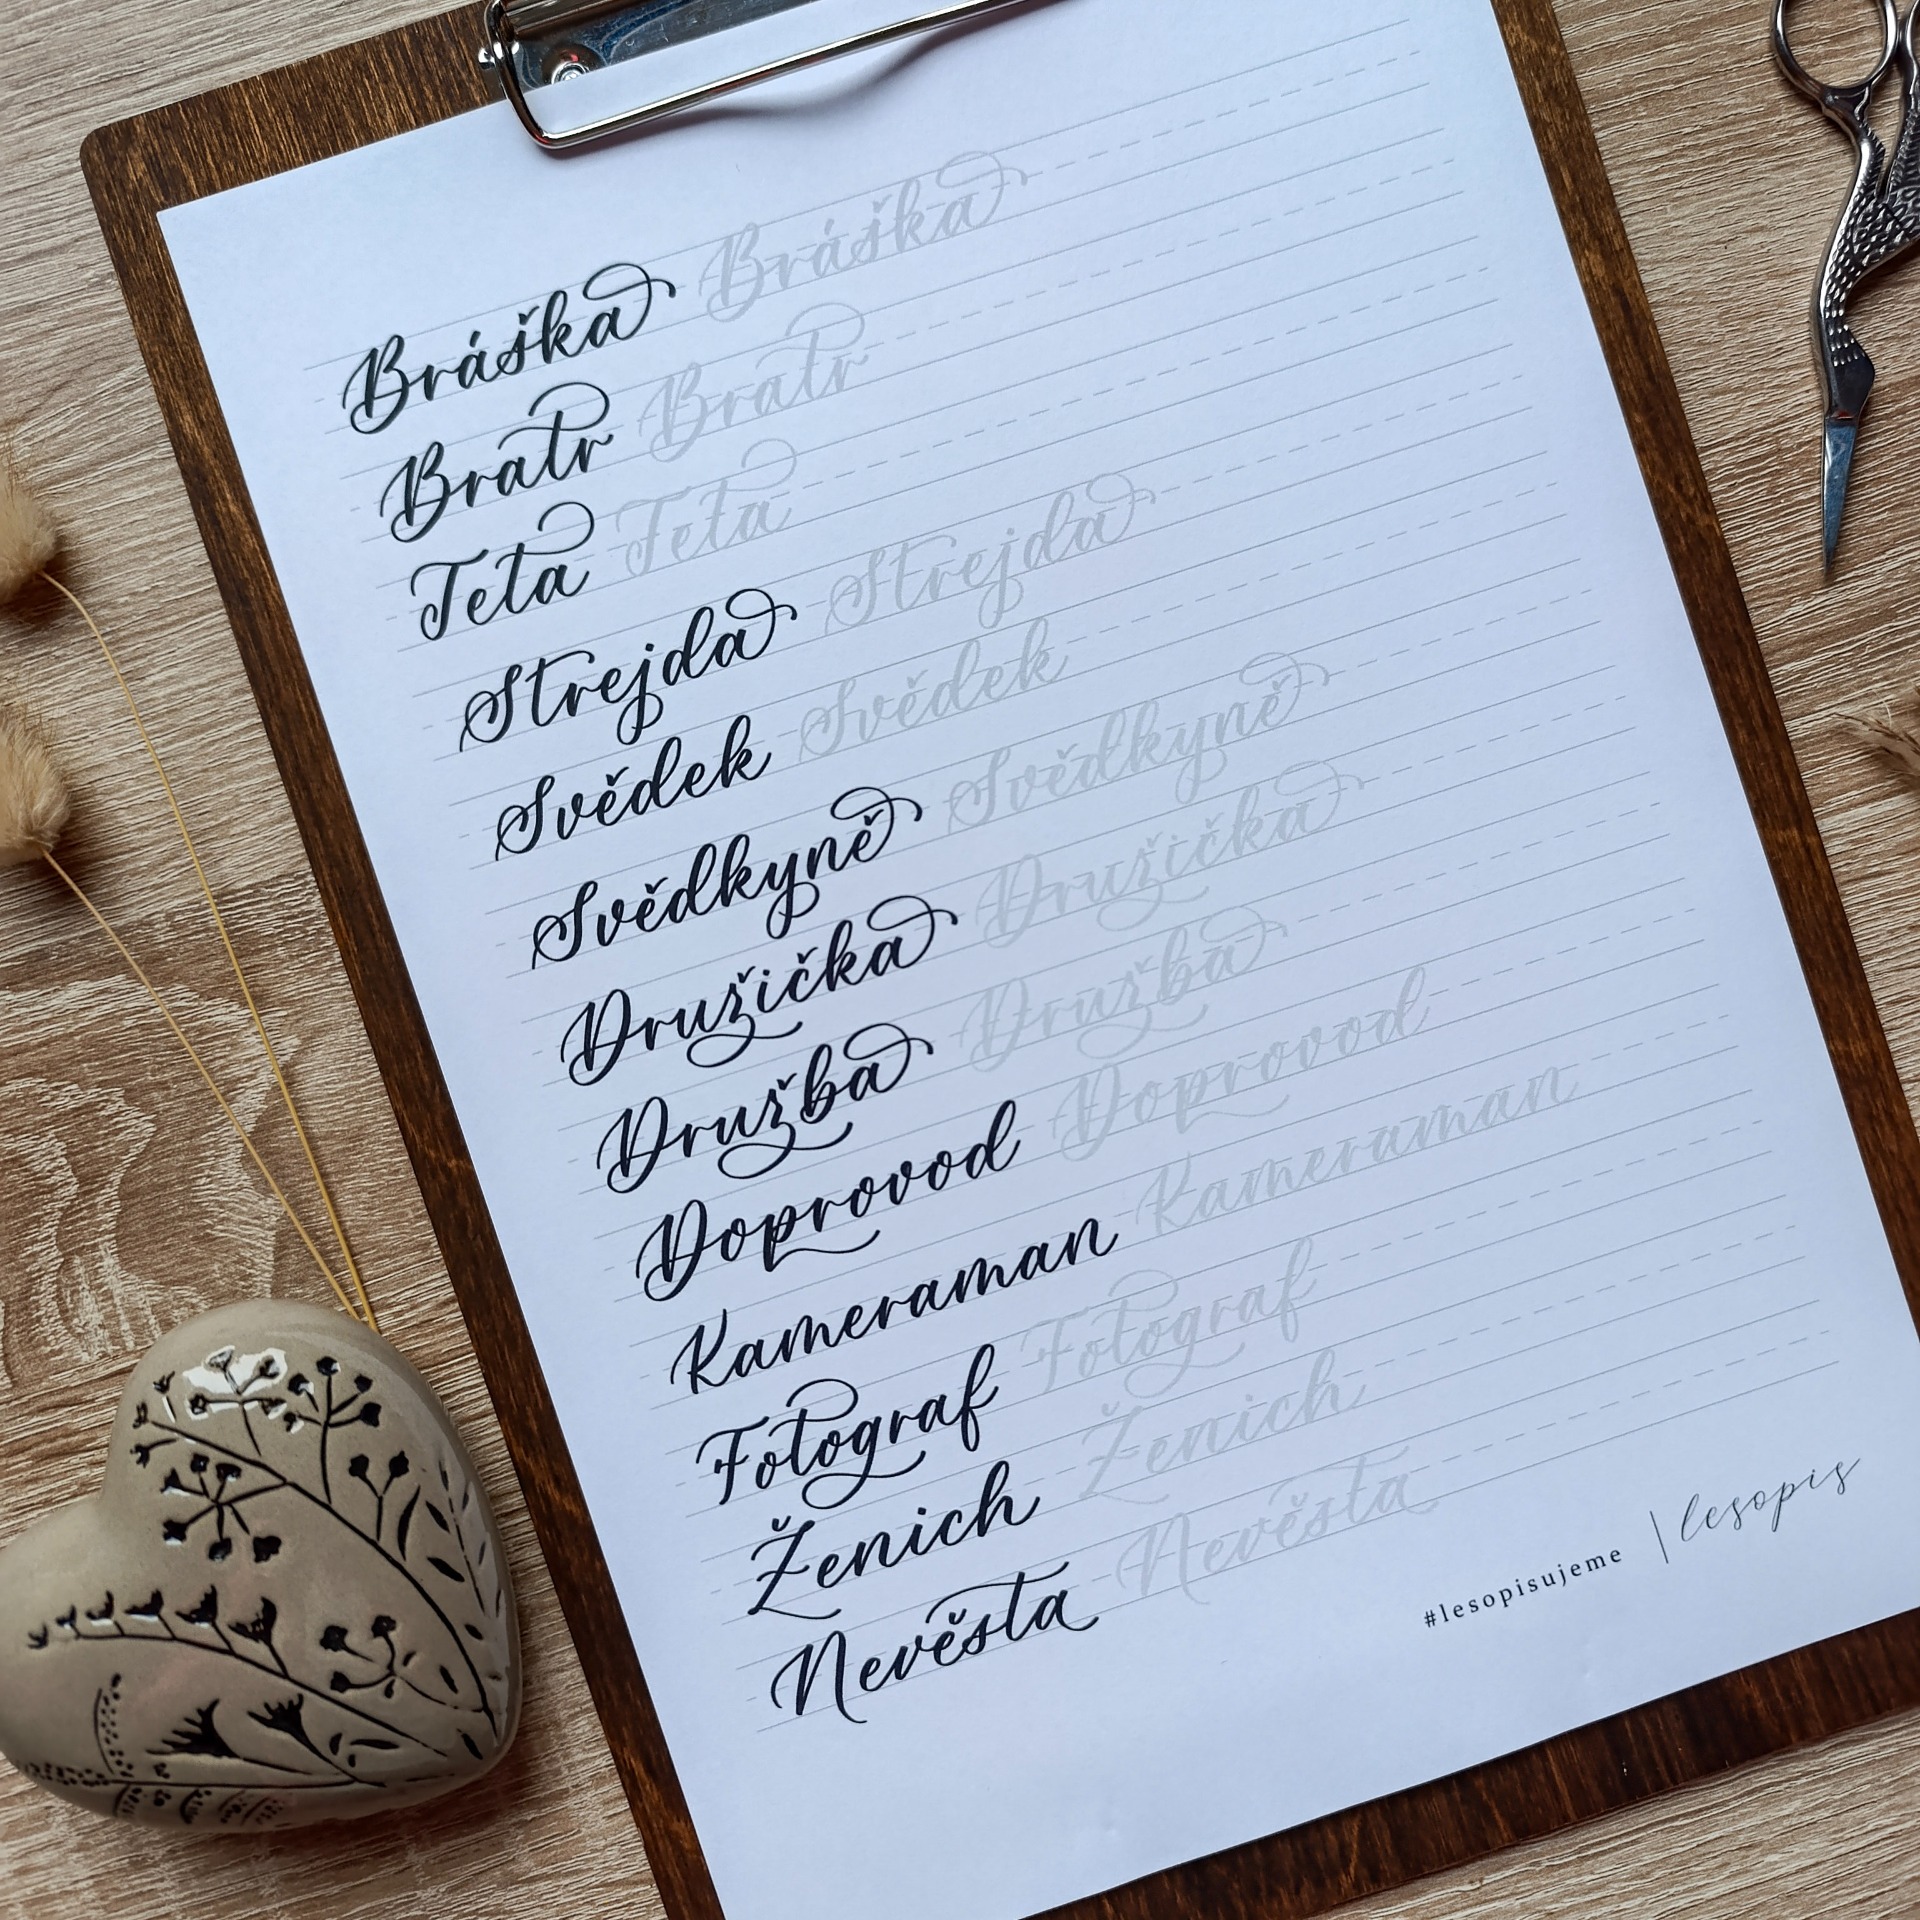 Bráška Bráška
Bratr Bratr
Teta Teta
Strejda Strejda
Svědek Svědek
Svědkyně Svědkyně
Družička Družička
Družba Družba
Doprovod Doprovod
Kameraman Kameraman
Fotograf Fotograf
Ženich Ženich
Nevěsta Nevěsta
#lesopisujeme | lesopis